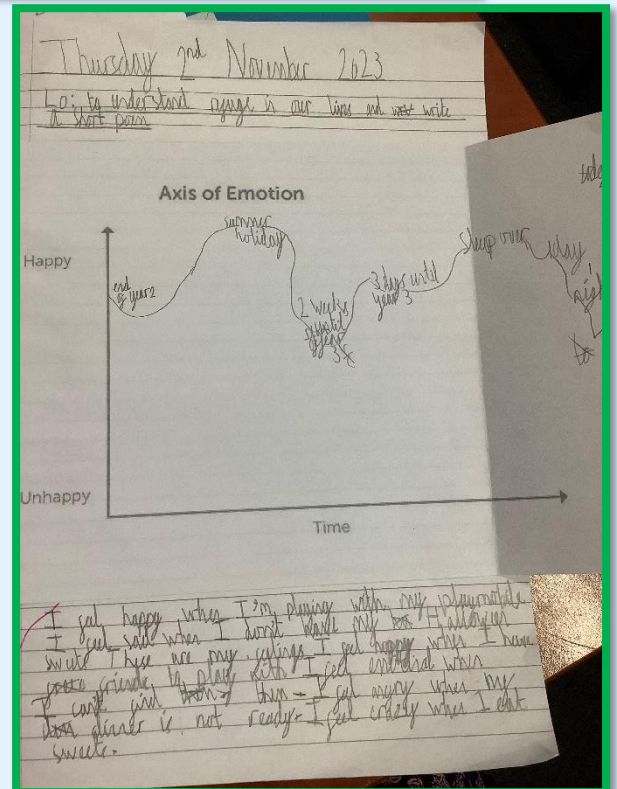 Thursday 2nd November 2023
Lo: to understand in our lives and write
a short poem
Axis of Emotion
Happy
Unhappy
Time
end
of year 2
summer
holiday
2 weeks
until
year
3
3 days until
year 3
Sleep over
I feel happy when I'm playing with my playmobile
I feel sad when I don't have my Halloween
sweets These are my feelings I feel happy when I have
friends to play with I feel emotional when
I can't find them - I feel angry when my
dinner is not ready - I feel crazy when I eat
sweets.